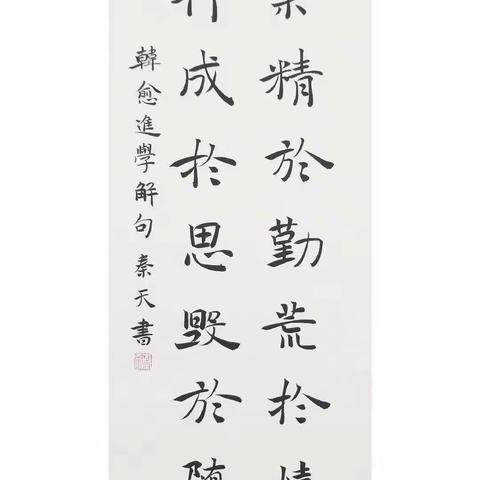 精於勤荒於
成於思毀於
韓愈進學解句 秦天書